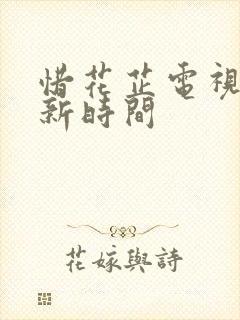 惜花芷電視
新時間
花嫁與詩